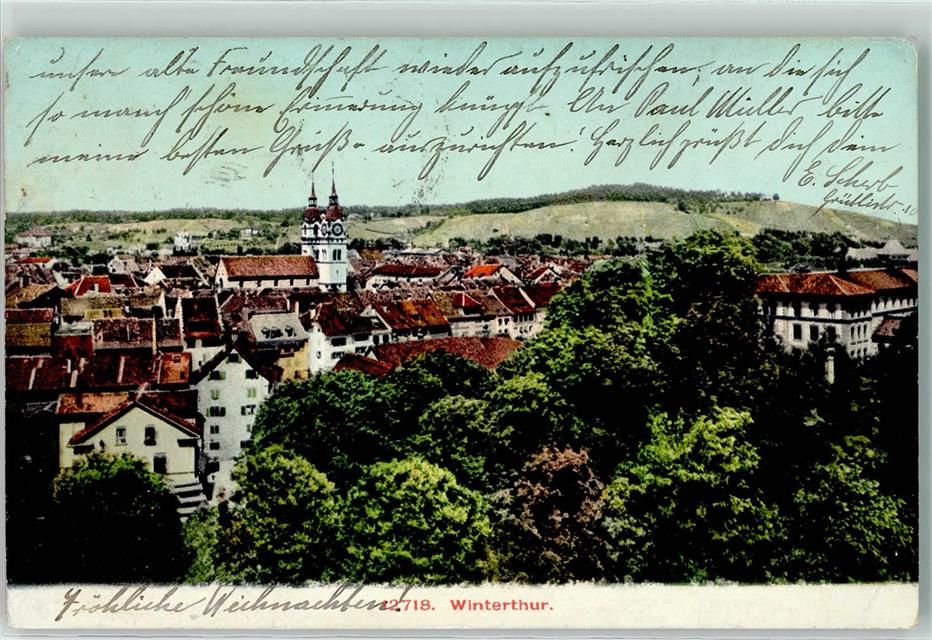 unsere alte Freundschaft wieder aufzufrischen, an die sich
so manch' schöne Erinnerung knüpft. An Paul Müller bitte
meine besten Grüße auszurichten! Herzlich grüßt Dich dein
E. Scherb
10
Fröhliche Weihnachten!
12718. Winterthur.